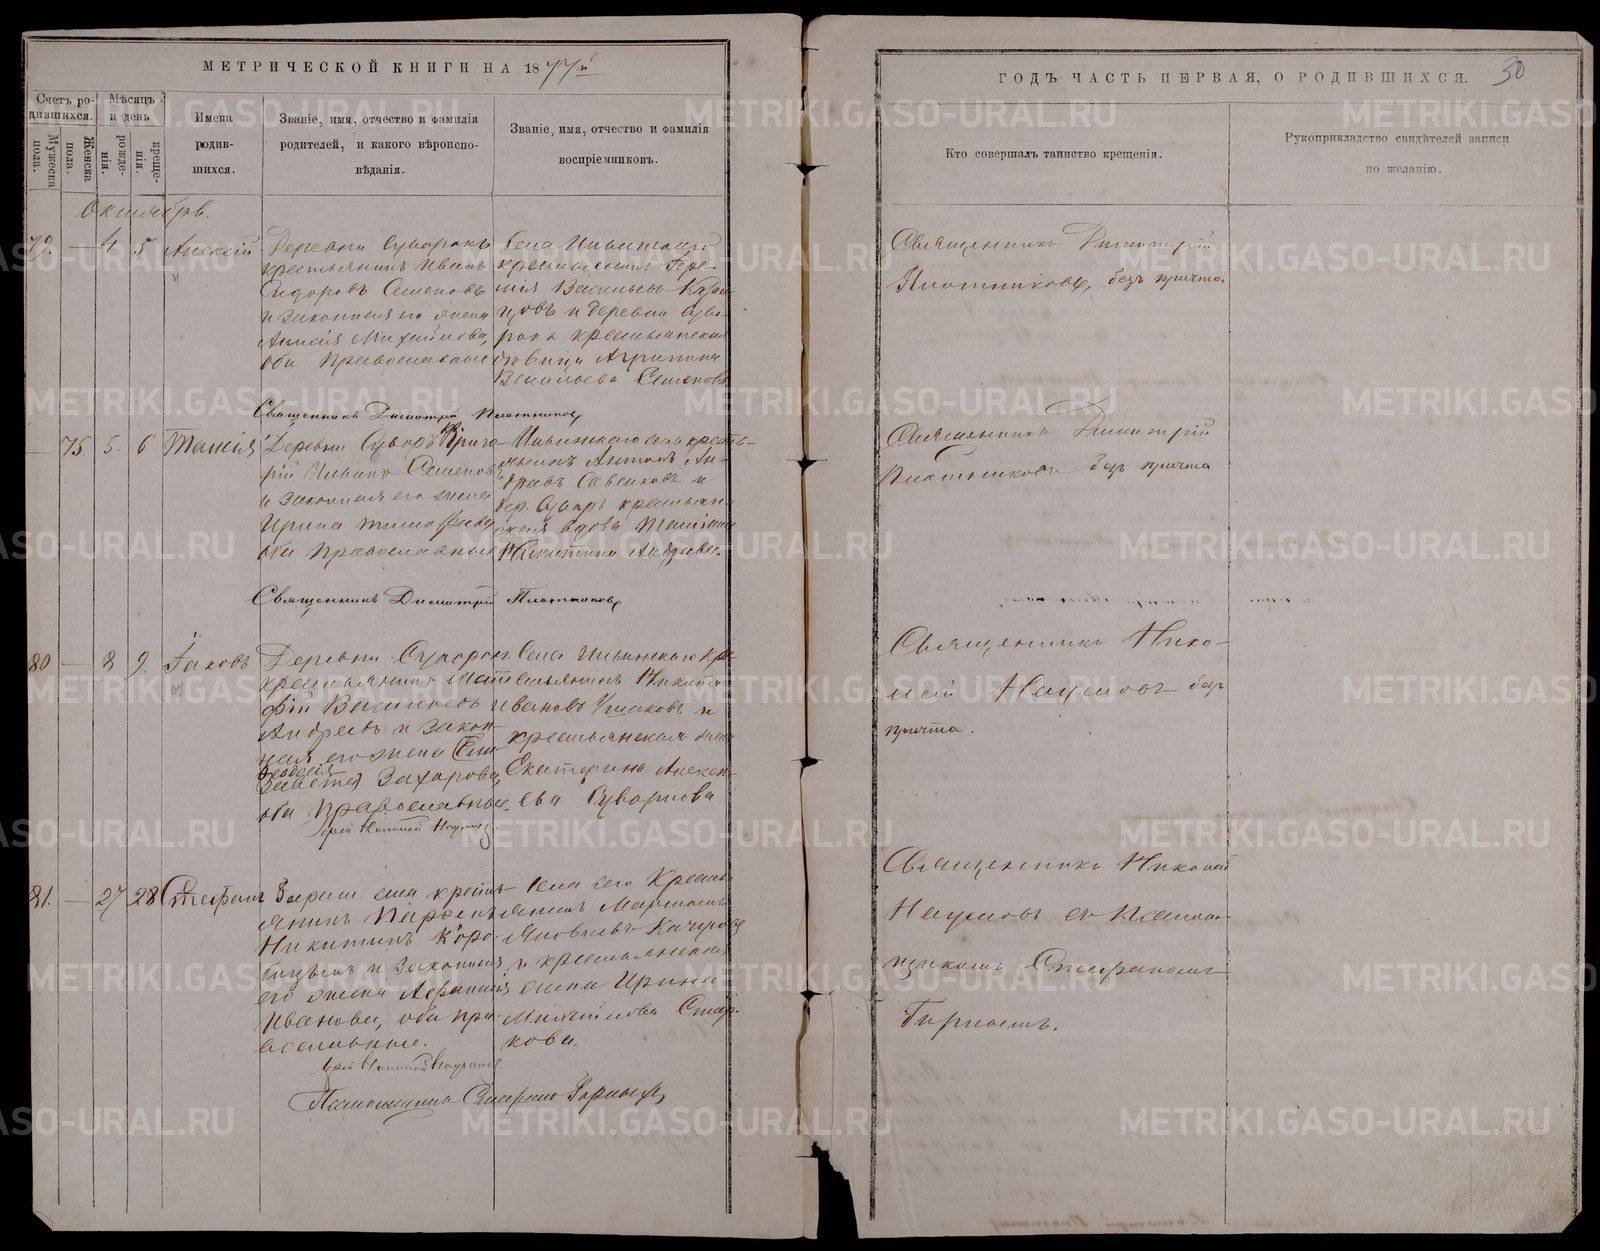 МЕТРИЧЕСКОЙ КНИГИ НА 1877й
Счетъ родившихся.
Мужеска пола.
Женска пола.
Мѣсяцъ и день
рожденія.
крещенія.
Имена родившихся.
Званіе, имя, отчество и фамилія родителей, и какого вѣроисповѣданія.
Званіе, имя, отчество и фамилія воспріемниковъ.
Октябрь.
79. — 4 5 Алексій
Деревни Суворокъ
крестьянинъ Иванъ
Сидоровъ Семеновъ
и законная его жена
Анисія Михайлова,
оба Православные
Села Ильинскаго
крестьянинъ
Васильевъ
и деревни Суво-
крестьянская
вдовица Агрипина
Васильева Семенов
Священникъ Димитрій Плотниковъ
— 75. 5. 6 Таисія
Деревни Суворъ Григо-
рій Ильинъ Семеновъ
и законная его жена
Ирина Тимофеева
оба Православные
Ильинскаго села кресть-
янинъ Антонъ Ан-
дреевъ Савенковъ и
дер. Сувор крестьян-
ская вдова
Никитина Андреева.
Священникъ Димитрій Плотниковъ
80 — 8 9. Іаковъ
Деревни Суворок
крестьянинъ Мат-
фій Васильевъ
Андреевъ и закон-
ная его жена
Феодосія
Захарова,
оба Православные.
Села Ильинскаго кре-
стьянинъ Никита
Ивановъ Ушаковъ и
крестьянская
Екатерина Алексѣ-
ева Суворкова
Іерей Николай Наумовъ.
81. — 27 28 Стефанъ
села кресть-
янинъ Парфенъ
Никитинъ Коро-
бицынъ и законная
его жена Афанасія
Иванова, оба пра-
вославные.
Села сего Кресть-
янинъ Мартинъ
Яковлевъ Качуров
и крестьянская
жена Ирина
Михайлова Стар-
кова.
Іерей Николай Наумовъ.
Псаломщикъ Стефанъ Горныхъ
ГОДЪ ЧАСТЬ ПЕРВАЯ, О РОДИВШИХСЯ.
30
Кто совершалъ таинство крещенія.
Рукоприкладство свидѣтелей записи по желанію.
Священникъ Димитрій
Плотниковъ, безъ причта
Священникъ Димитрій
Плотниковъ безъ причта
Священникъ Нико-
лай Наумовъ безъ
причта.
Священникъ Николай
Наумовъ съ Псалом-
щикомъ Стефаномъ
Горнымъ.
METRIKI.GASO-URAL.RU